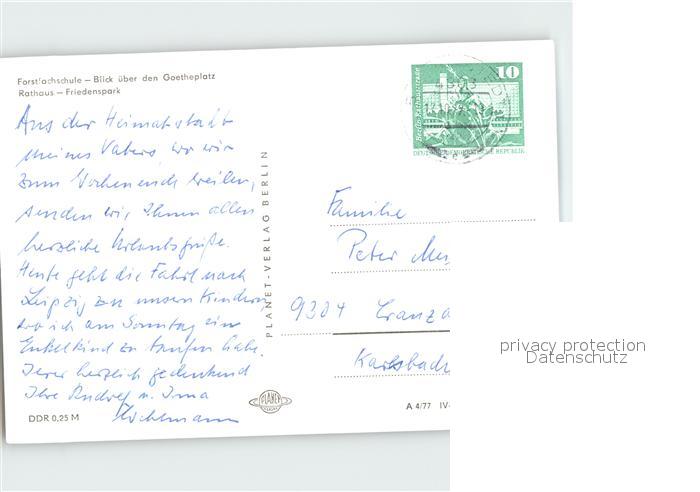 Forstfachschule – Blick über den Goetheplatz
Rathaus – Friedenspark
Aus der Heimatstadt
meines Vaters, wo wir
zum Wochenende weilen,
senden wir Ihnen allen
herzliche Urlaubsgrüße.
Heute geht die Fahrt nach
Leipzig zu unsern Kindern,
wo ich am Sonntag ein
Enkelkind zu taufen habe.
Ihrer herzlich gedenkend
Ihre u. Irma
DDR 0,25 M
PLANET-VERLAG BERLIN
PLANET
Berlin-Rathausstraße
10
DEUTSCHE DEMOKRATISCHE REPUBLIK
Familie
Peter
9304 Cranza
Karlsbad
A 4/77 IV
privacy protection
Datenschutz